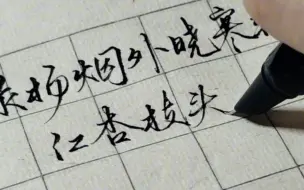 杨烟外晓寒
红杏枝头